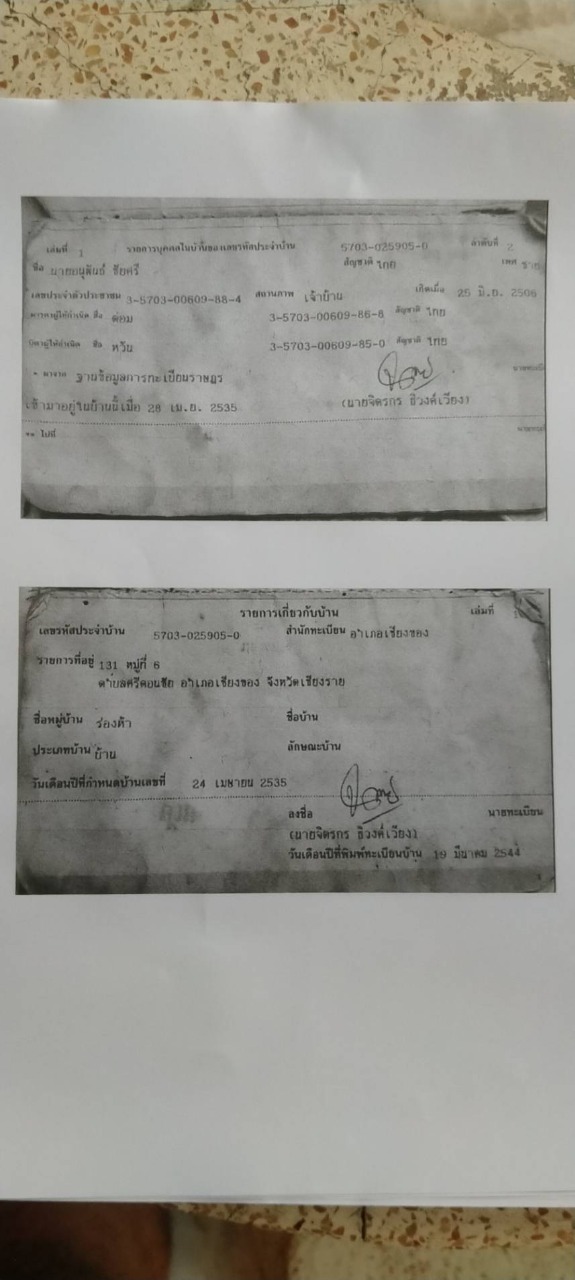 เล่มที่ 1 รายการบุคคลในบ้านของเลขรหัสประจำบ้าน 5703-025905-0 ลำดับที่ 2
ชื่อ นายอนุพันธ์ ชัยศรี สัญชาติ ไทย เพศ ชาย
เลขประจำตัวประชาชน 3-5703-00609-88-4 สถานภาพ เจ้าบ้าน เกิดเมื่อ 25 มิ.ย. 2506
มารดาผู้ให้กำเนิด ชื่อ ต่อม 3-5703-00609-86-8 สัญชาติ ไทย
บิดาผู้ให้กำเนิด ชื่อ หวัน 3-5703-00609-85-0 สัญชาติ ไทย
* มาจาก ฐานข้อมูลการทะเบียนราษฎร นายทะเบียน
เข้ามาอยู่ในบ้านนี้เมื่อ 28 เม.ย. 2535 (นายจิตรกร ธิวงค์เวียง)
** ไปที่
รายการเกี่ยวกับบ้าน เล่มที่
เลขรหัสประจำบ้าน 5703-025905-0 สำนักทะเบียน อำเภอเชียงของ
รายการที่อยู่ 131 หมู่ที่ 6
ตำบลศรีดอนชัย อำเภอเชียงของ จังหวัดเชียงราย
ชื่อหมู่บ้าน ร่องห้า ชื่อบ้าน
ประเภทบ้าน บ้าน ลักษณะบ้าน
วันเดือนปีที่กำหนดบ้านเลขที่ 24 เมษายน 2535
ลงชื่อ นายทะเบียน
(นายจิตรกร ธิวงค์เวียง)
วันเดือนปีที่พิมพ์ทะเบียนบ้าน 19 มีนาคม 2544